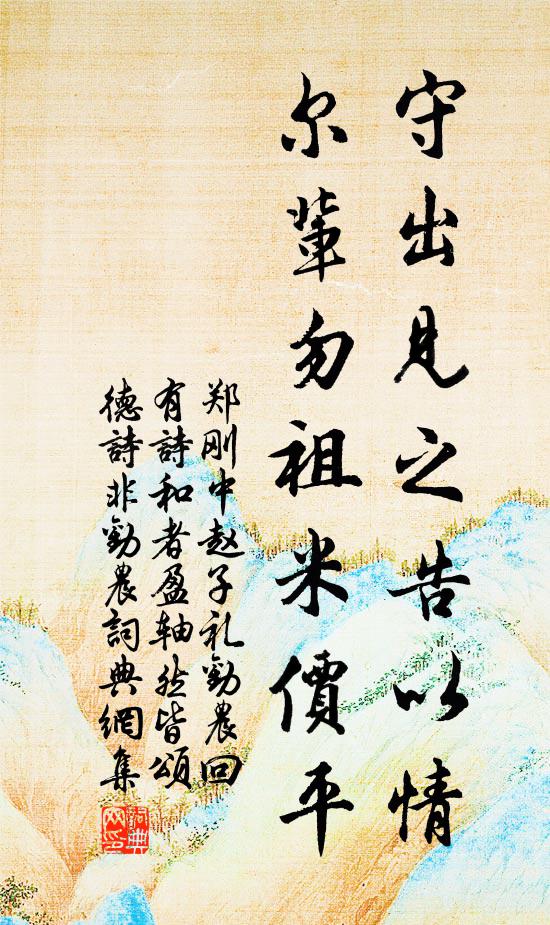 守出見之告以情
尔輩勿祖米價平
郑刚中赵子礼勸農回
有詩和者盈轴然皆頌
德詩非勸農詞典網集
詞典網印